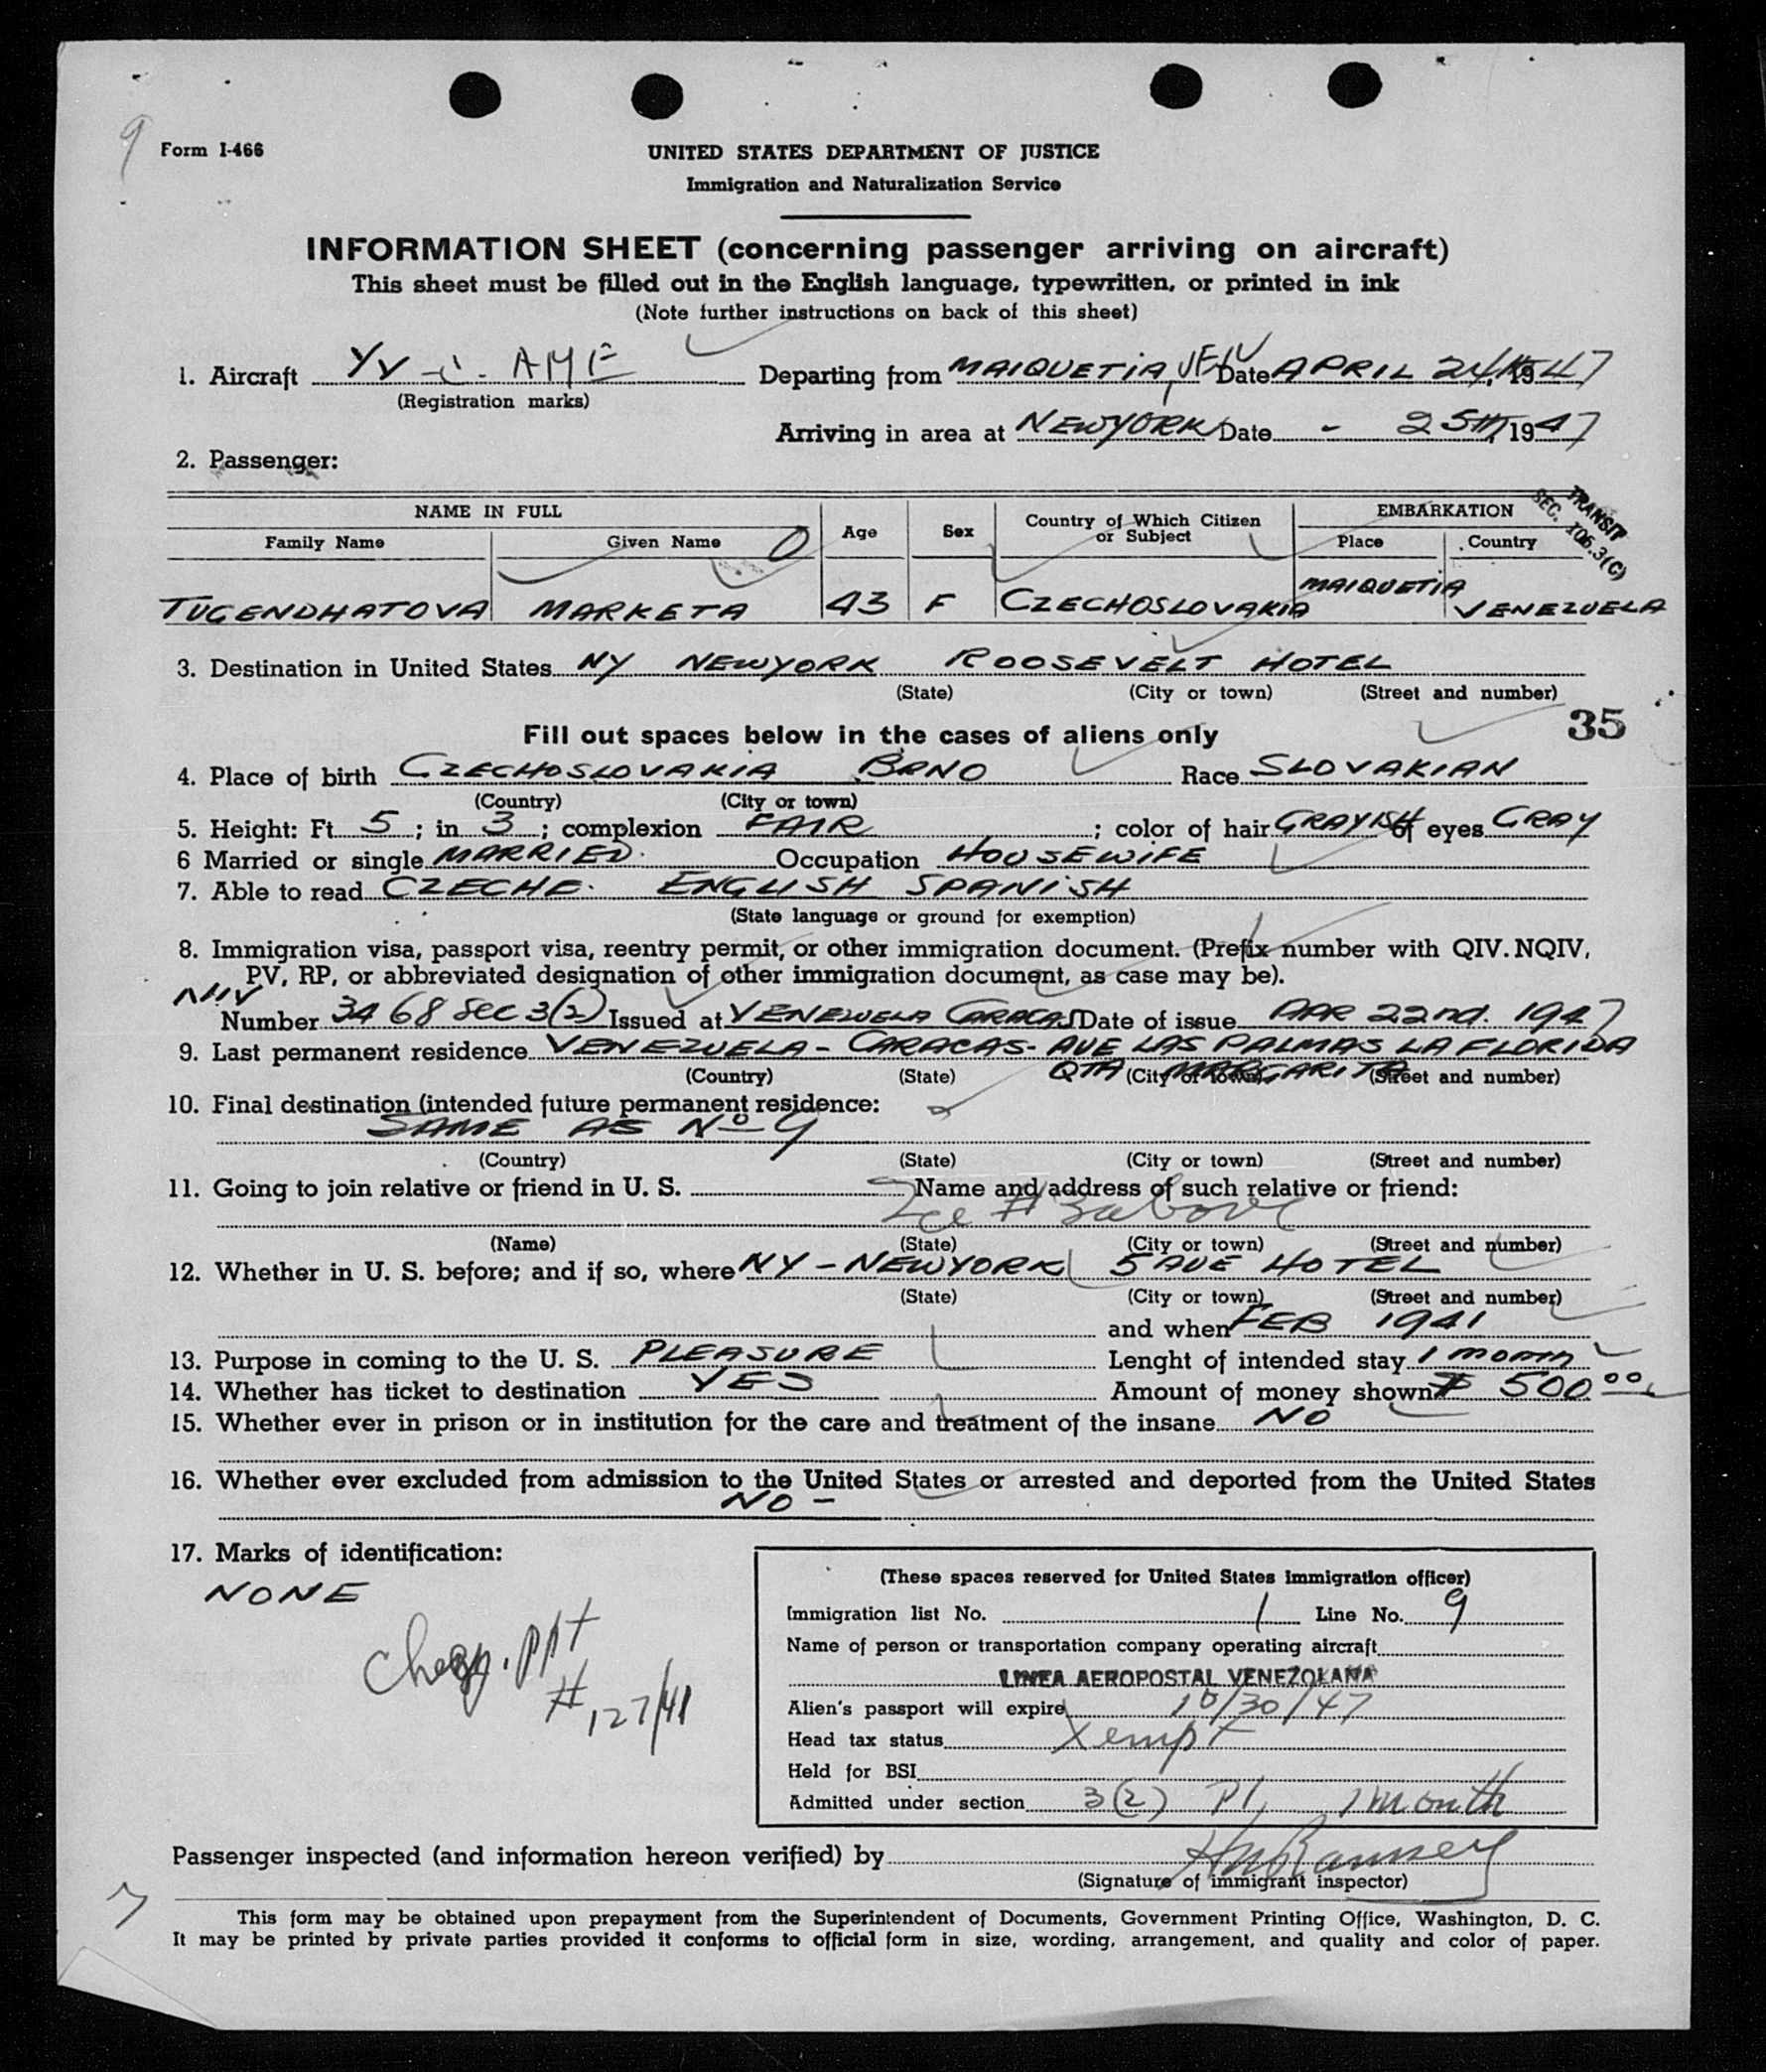 9
Form I-466
UNITED STATES DEPARTMENT OF JUSTICE
Immigration and Naturalization Service
INFORMATION SHEET (concerning passenger arriving on aircraft)
This sheet must be filled out in the English language, typewritten, or printed in ink
(Note further instructions on back of this sheet)
1. Aircraft YV - C - AME Departing from MAIQUETIA, VEN Date APRIL 24TH 1947
(Registration marks)
Arriving in area at NEWYORK Date - 25TH, 1947
2. Passenger:
TRANSIT
SEC. 106.3(C)
NAME IN FULL Age Sex Country of Which Citizen or Subject EMBARKATION
Family Name Given Name Place Country
TUGENDHATOVA MARKETA 43 F CZECHOSLOVAKIA MAIQUETIA VENEZUELA
3. Destination in United States NY NEWYORK ROOSEVELT HOTEL
(State) (City or town) (Street and number)
35
Fill out spaces below in the cases of aliens only
4. Place of birth CZECHOSLOVAKIA BRNO Race SLOVAKIAN
(Country) (City or town)
5. Height: Ft. 5; in 3; complexion FAIR; color of hair GRAYISH of eyes GRAY
6 Married or single MARRIED. Occupation HOUSEWIFE
7. Able to read CZECHE. ENGLISH SPANISH
(State language or ground for exemption)
8. Immigration visa, passport visa, reentry permit, or other immigration document. (Prefix number with QIV. NQIV,
PV, RP, or abbreviated designation of other immigration document, as case may be).
Number 3468 SEC 3(2) Issued at VENEZUELA CARACAS Date of issue APR 22nd. 1947
9. Last permanent residence VENEZUELA - CARACAS - AVE LAS PALMAS LA FLORIDA
QTA MARGARITA
(Country) (State) (City or town) (Street and number)
10. Final destination (intended future permanent residence:
SAME AS No 9
(Country) (State) (City or town) (Street and number)
11. Going to join relative or friend in U. S. Name and address of such relative or friend:
See # 3 above
(Name) (State) (City or town) (Street and number)
12. Whether in U. S. before; and if so, where NY - NEWYORK 5 AVE HOTEL
(State) (City or town) (Street and number)
and when FEB 1941
13. Purpose in coming to the U. S. PLEASURE Lenght of intended stay 1 month
14. Whether has ticket to destination YES Amount of money shown $ 500.00
15. Whether ever in prison or in institution for the care and treatment of the insane NO
16. Whether ever excluded from admission to the United States or arrested and deported from the United States
NO -
17. Marks of identification:
NONE
ppt
# 127/41
(These spaces reserved for United States immigration officer)
Immigration list No. 1 Line No. 9
Name of person or transportation company operating aircraft
LINEA AEROPOSTAL VENEZOLANA
Alien's passport will expire 10/30/47
Head tax status Xempt
Held for BSI
Admitted under section 3(2) P1, 1 month
Passenger inspected (and information hereon verified) by
(Signature of immigrant inspector)
This form may be obtained upon prepayment from the Superintendent of Documents, Government Printing Office, Washington, D. C.
It may be printed by private parties provided it conforms to official form in size, wording, arrangement, and quality and color of paper.